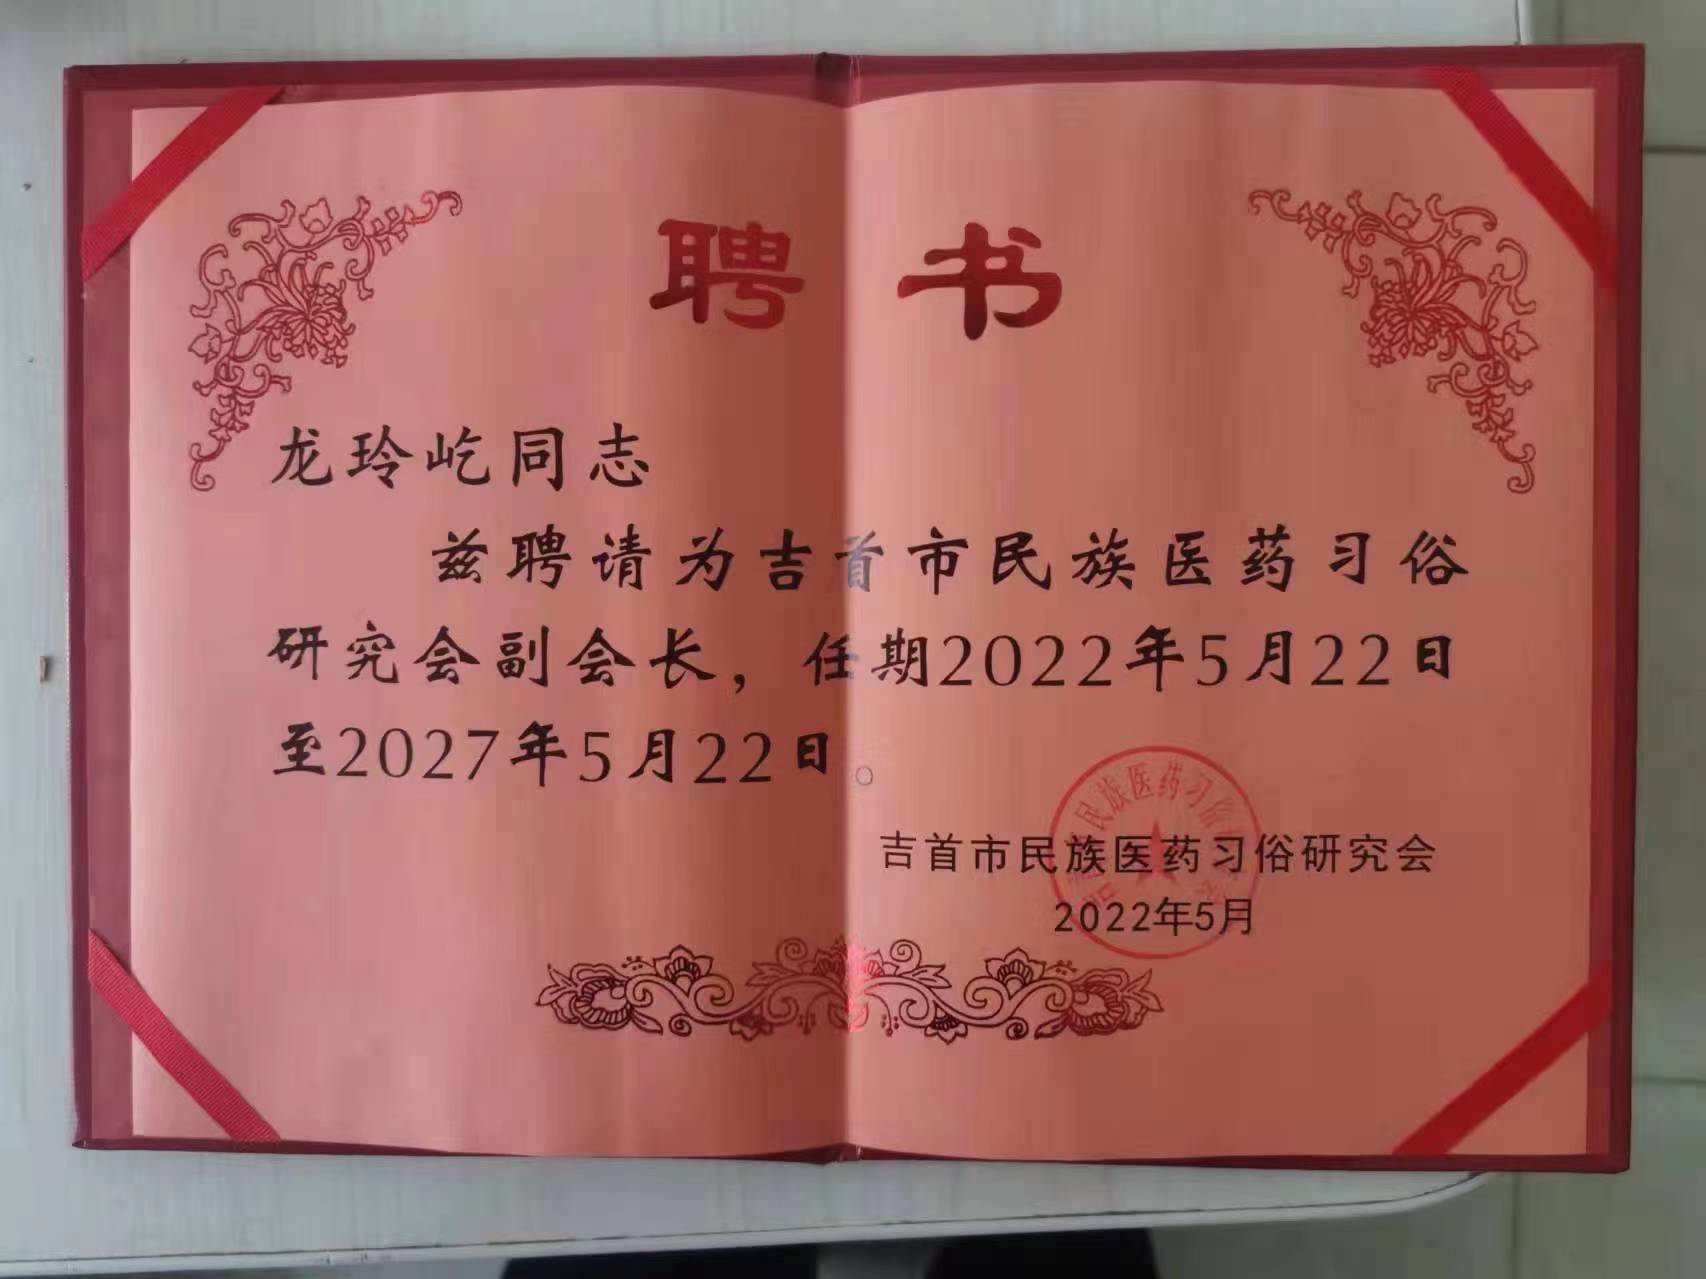 聘书
龙玲屹同志
兹聘请为吉首市民族医药习俗
研究会副会长，任期2022年5月22日
至2027年5月22日。
吉首市民族医药习俗研究会
2022年5月